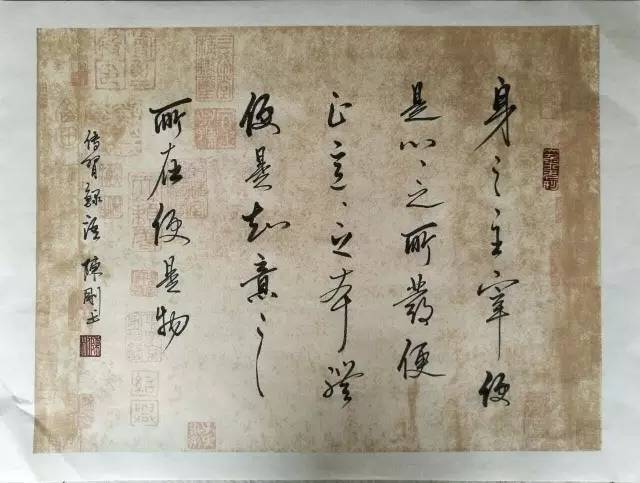 身之主宰便
是心〻之所發便
是意〻之本體
便是知意之
所在便是物
傳習錄語 陳剛書